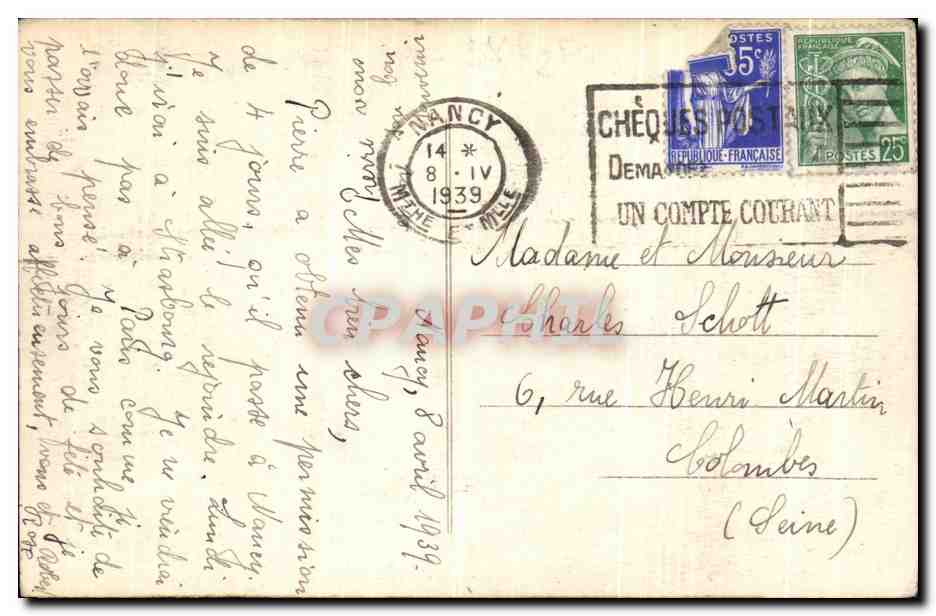 Nancy, 8 avril 1939.
Mes bien chers,
Pierre a obtenu une permission
de 4 jours, qu'il passe à Nancy.
Je suis allée le rejoindre. Lundi
j'irai à Strasbourg. Je ne viendrai
donc pas à Paris comme je
l'avais pensé. Je vous souhaite de
passer de bons jours de fête et je
vous embrasse affectueusement, vous et
Rose
NANCY
14 *
8 · IV
1939
MTHE
MLLE
CHÈQUES POSTAUX
DEMANDEZ
UN COMPTE COURANT
POSTES
65c
RÉPUBLIQUE-FRANÇAISE
RÉPUBLIQUE
FRANÇAISE
POSTES 25c
Madame et Monsieur
Charles Schott
6, rue Henri Martin
Colombes
(Seine)
CPAPHIL